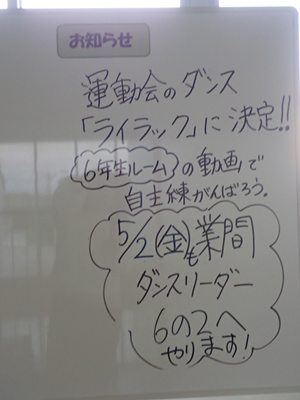 お知らせ
運動会のダンス
「ライラック」に決定!!
6年生ルームの動画で
自主練がんばろう。
5/2(金)も業間
ダンスリーダー
6の2へ
やります!